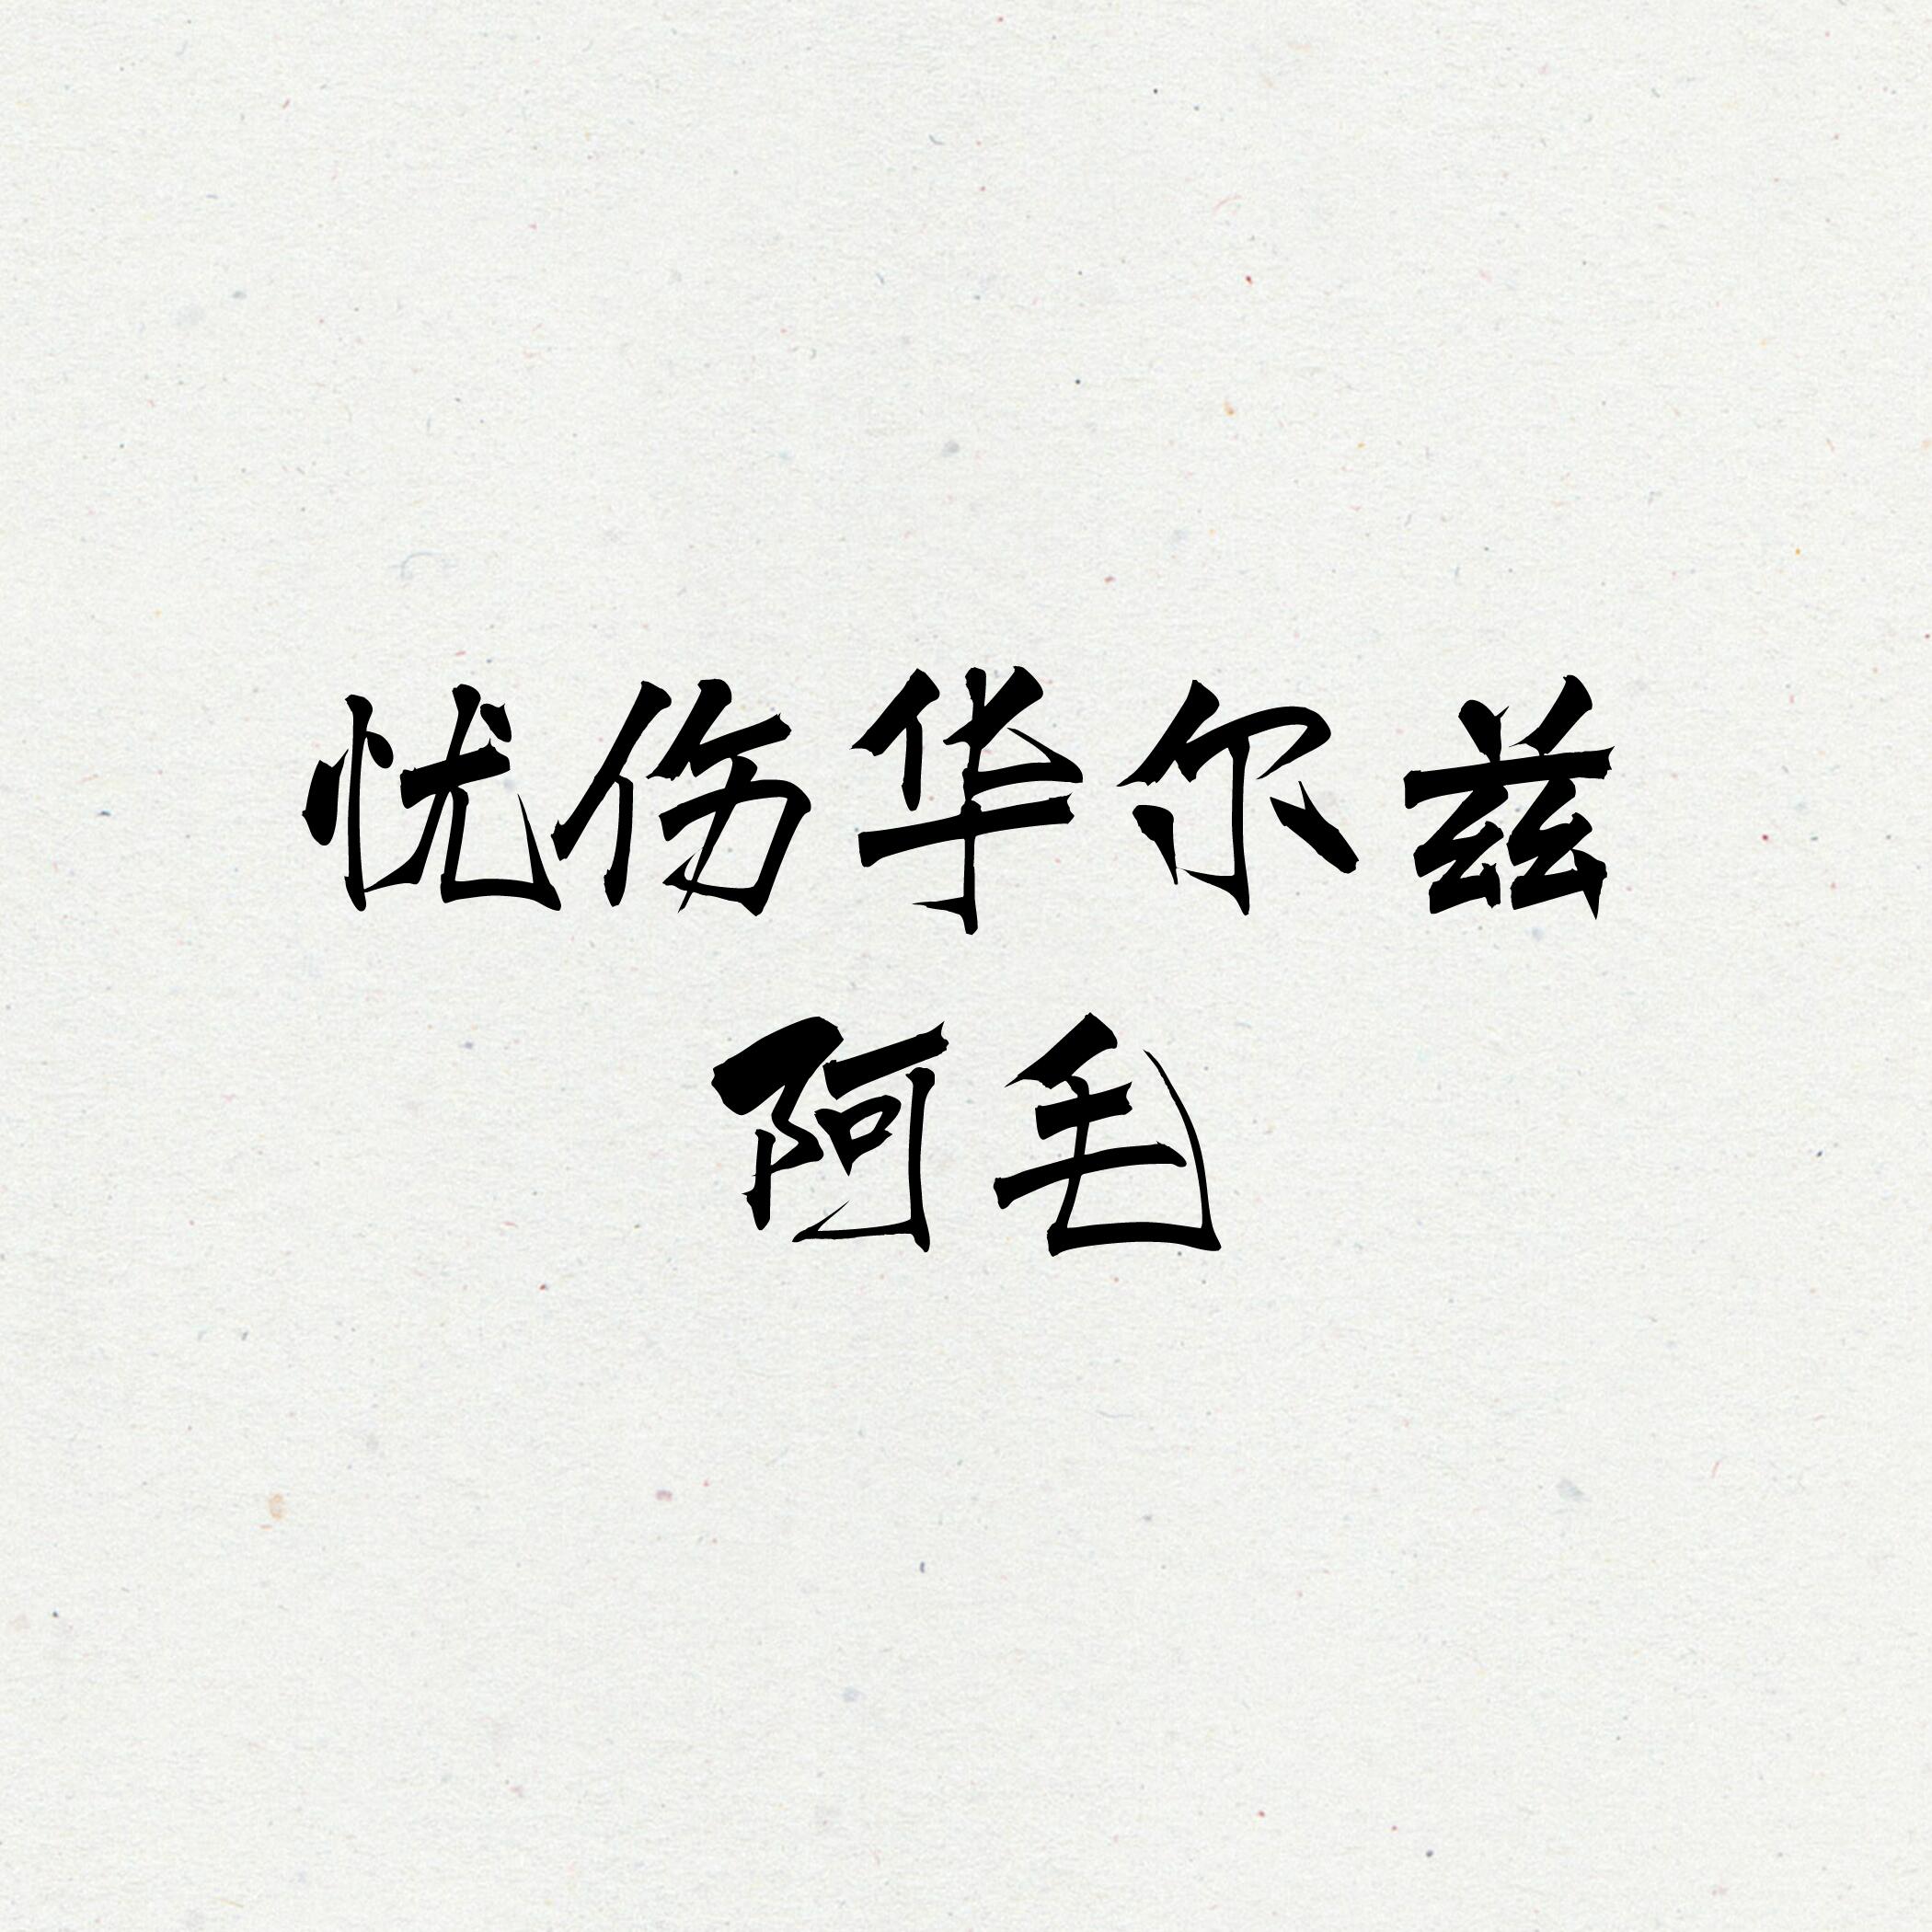 忧伤华尔兹
阿毛